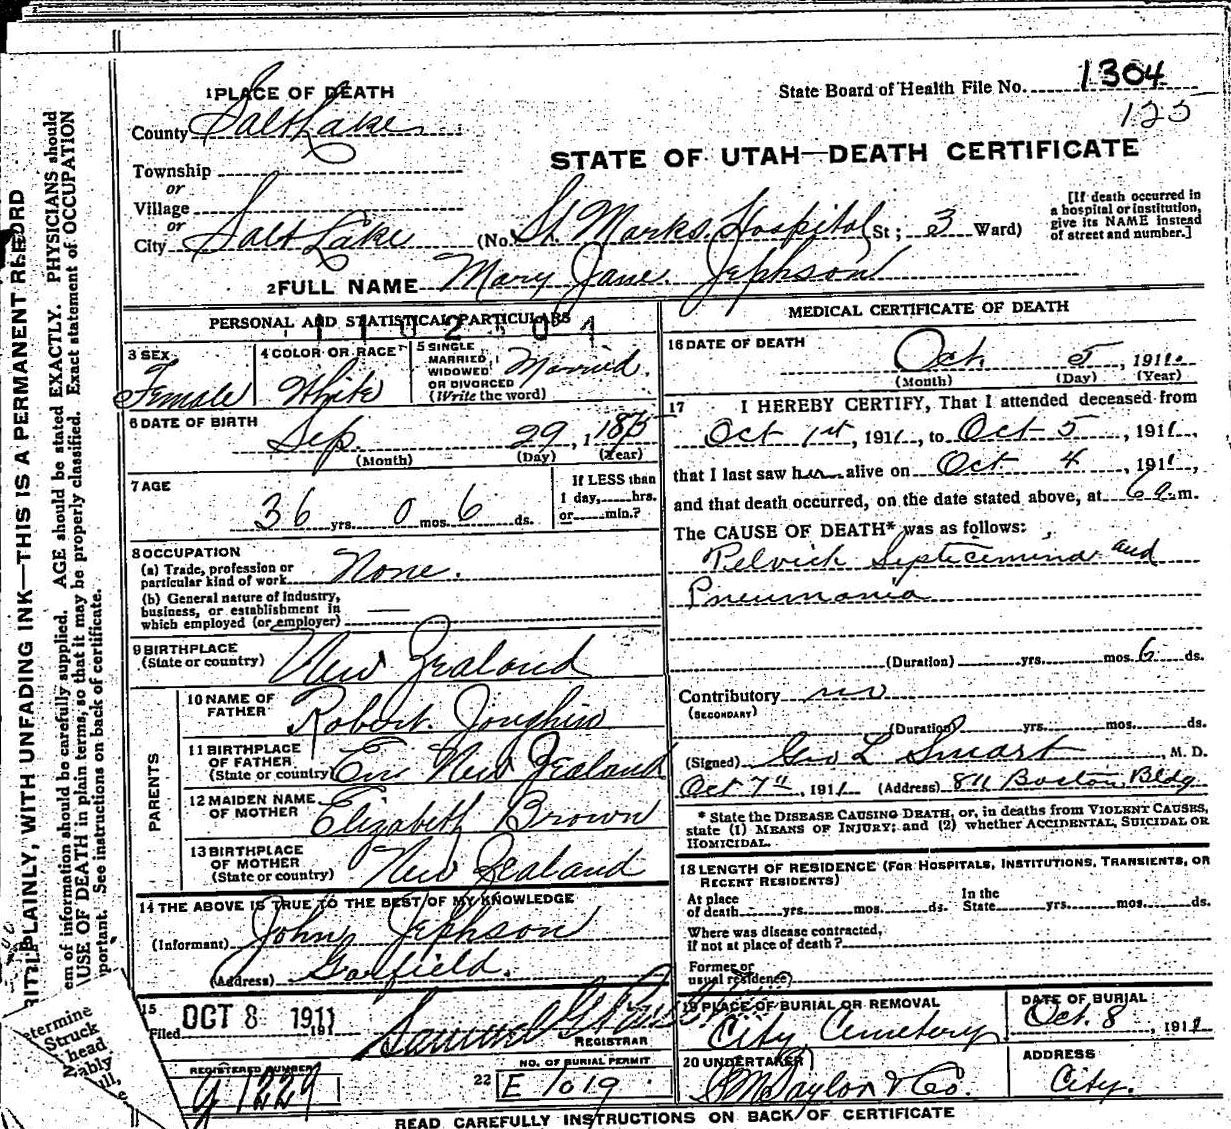 1304
State Board of Health File No.
125
1 PLACE OF DEATH
County Salt Lake
STATE OF UTAH—DEATH CERTIFICATE
Township
or
Village
or
City Salt Lake (No. St Marks Hospital St; 3 Ward)
[If death occurred in a hospital or institution, give its NAME instead of street and number.]
2 FULL NAME Mary Jane Jephson
PERSONAL AND STATISTICAL PARTICULARS
3 SEX Female
4 COLOR OR RACE White
5 SINGLE MARRIED, WIDOWED OR DIVORCED (Write the word) Married.
6 DATE OF BIRTH Sep. 29, 1875
(Month) (Day) (Year)
7 AGE 36 yrs. 0 mos. 6 ds.
If LESS than 1 day, hrs. or min.?
8 OCCUPATION
(a) Trade, profession or particular kind of work None.
(b) General nature of Industry, business, or establishment in which employed (or employer) —
9 BIRTHPLACE (State or country) New Zealand
PARENTS
10 NAME OF FATHER Robert Joughin
11 BIRTHPLACE OF FATHER (State or country) New Zealand
12 MAIDEN NAME OF MOTHER Elizabeth Brown
13 BIRTHPLACE OF MOTHER (State or country) New Zealand
14 THE ABOVE IS TRUE TO THE BEST OF MY KNOWLEDGE
(Informant) John Jephson
(Address) Garfield.
15
Filed OCT 8 1911
Samuel G.
REGISTRAR
REGISTERED NUMBER
g 1229
22 NO. OF BURIAL PERMIT
E 1019
MEDICAL CERTIFICATE OF DEATH
16 DATE OF DEATH Oct. 5, 1911.
(Month) (Day) (Year)
17 I HEREBY CERTIFY, That I attended deceased from
Oct 1st, 1911, to Oct 5, 1911,
that I last saw her alive on Oct 4, 1911,
and that death occurred, on the date stated above, at 6 a.m.
The CAUSE OF DEATH* was as follows:
Pelvick Septicemina and
Pneumania
(Duration) yrs. mos. 6 ds.
Contributory no
(SECONDARY)
(Duration) yrs. mos. ds.
(Signed) Geo L Smart, M. D.
Oct 7th, 1911 (Address) 811 Boston Bldg
* State the DISEASE CAUSING DEATH, or, in deaths from VIOLENT CAUSES, state (1) MEANS OF INJURY; and (2) whether ACCIDENTAL, SUICIDAL OR HOMICIDAL.
18 LENGTH OF RESIDENCE (FOR HOSPITALS, INSTITUTIONS, TRANSIENTS, OR RECENT RESIDENTS)
At place of death yrs. mos. ds. In the State yrs. mos. ds.
Where was disease contracted, if not at place of death?
Former or usual residence)
19 PLACE OF BURIAL OR REMOVAL City Cemetery
DATE OF BURIAL: Oct. 8, 1911
20 UNDERTAKER Taylor & Co.
ADDRESS City.
READ CAREFULLY INSTRUCTIONS ON BACK OF CERTIFICATE
PLAINLY, WITH UNFADING INK—THIS IS A PERMANENT RECORD
em of information should be carefully supplied. AGE should be stated EXACTLY. PHYSICIANS should
USE OF DEATH in plain terms, so that it may be properly classified. Exact statement of OCCUPATION
portant. See instructions on back of certificate.
etermine
Struck
head
ably
ull,